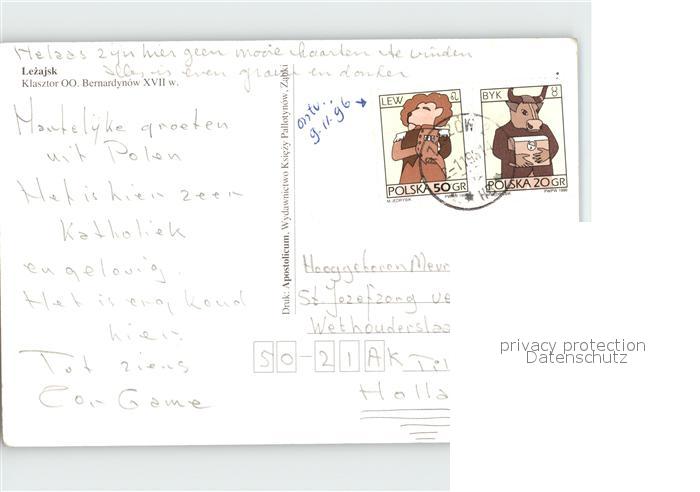 Helaas zijn hier geen mooie kaarten te vinden
alles is even grauw en donker
Leżajsk
Klasztor OO. Bernardynów XVII w.
Hartelijke groeten
uit Polen
Het is hier zeer
Katholiek
en gelovig.
Het is erg koud
hier.
Tot ziens
Cor Game
Druk: Apostolicum. Wydawnictwo Księży Pallotynów, Ząbki
ontv.:
9.11.96
LEW
POLSKA 50 GR
M. JĘDRYSIK
PWPW 1996
BYK
POLSKA 20 GR
PWPW 1996
Hooggeboren
St Jozefzorg
Wethouderslaa
50-21AK Til
Holla
privacy protection
Datenschutz